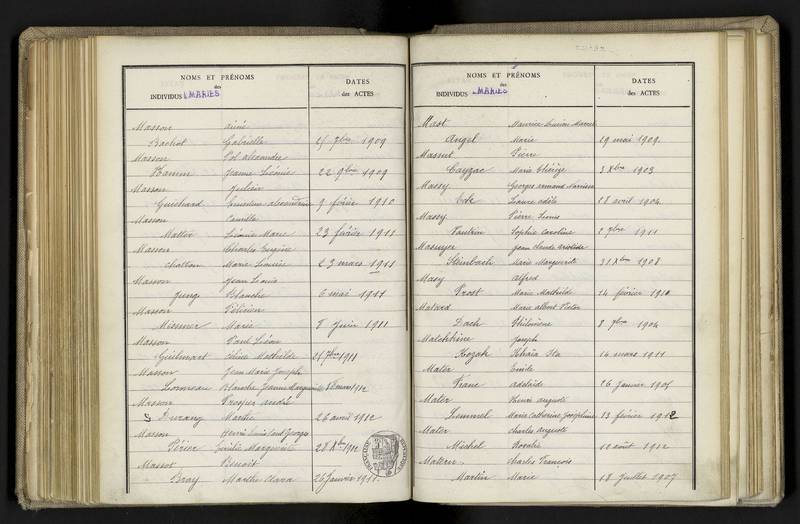 NOMS ET PRÉNOMS
des
INDIVIDUS MARIÉS
DATES
des ACTES
Masson aimé
Bachot Gabrielle 25 7bre 1909
Masson Pol alexandre
Hamm Jeanne Léonie 22 9bre 1909
Masson Julien
Guichard Ernestine alexandrine 9 février 1910
Masson Camille
Matter Léonie Marie 23 février 1911
Masson Charles Eugène
Chatton Marie Louise 23 mars 1911
Masson Jean Louis
Jung Blanche 6 mai 1911
Masson Félicien
Missner Marie 8 juin 1911
Masson Paul Léon
Guilmart Céline Mathilde 1911
Masson Jean Marie Joseph
Blanche Jeanne Marguerite 1912
Masson Prosper andré
Durany Marthe 26 avril 1912
Masson Henri Louis Paul Georges
Périer Emilie Marguerite 28 Xbre 1912
Massot Benoit
Bray Marthe Clara 26 Janvier 1911
NOMS ET PRÉNOMS
des
INDIVIDUS MARIÉS
DATES
des ACTES
Mast Maurice Lucien Marcel
Angel Marie 19 mai 1909
Massut Pierre
Cayzac Marie Thérèze 3 Xbre 1903
Massy Georges armand Narcisse
Laure adèle 28 avril 1904
Massy Pierre Louis
Vautrin Sophie Caroline 2 9bre 1911
Masuyer Jean Claude aristide
Steinbach Marie Marguerite 31 Xbre 1908
Masy alfred
Prost Marie Mathilde 14 février 1910
Matard Marie albert Victor
Dach Philomène 8 7bre 1904
Matchkine Joseph
Kozak Khaïa Ita 14 mars 1911
Mater Emile
adelaïde 26 janvier 1905
Mater Henri auguste
Zemmel Marie Catherine Joséphine 13 février 1912
Mater Charles auguste
Michel Rosalie 10 août 1912
Charles François
Martin Marie 18 Juillet 1907